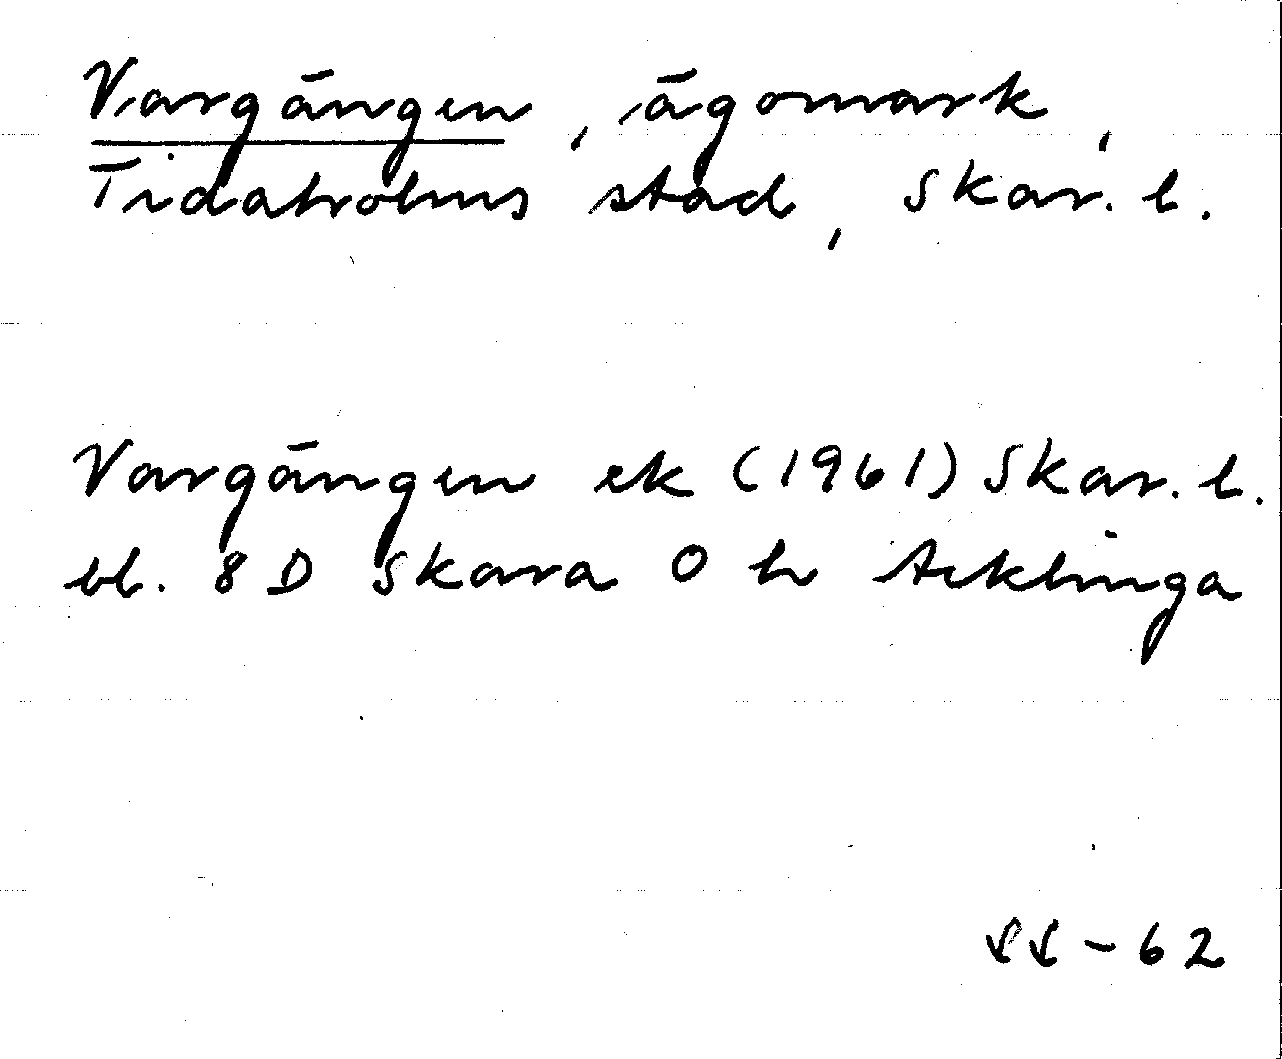 Vargängen, ägomark,
Tidaholms stad, Skar. l.
Vargängen ek (1961) Skar. l.
bl. 8 D Skara 0 h Acklinga
-62